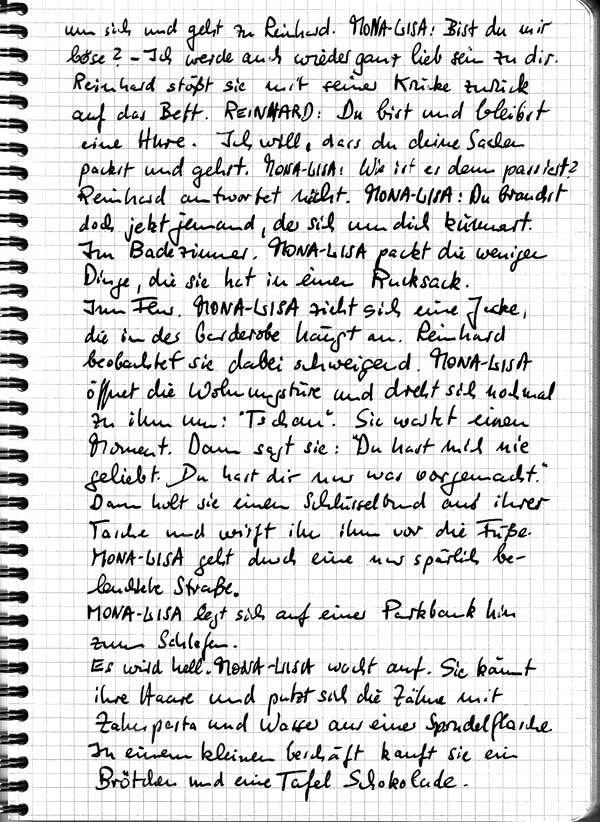 um sich und geht zu Reinhard. MONA-LISA: Bist du mir
böse? – Ich werde auch wieder ganz lieb sein zu dir.
Reinhard stößt sie mit seiner Krücke zurück
auf das Bett. REINHARD: Du bist und bleibst
eine Hure. Ich will, dass du deine Sachen
packst und gehst. MONA-LISA: Wie ist es denn passiert?
Reinhard antwortet nicht. MONA-LISA: Du brauchst
doch jetzt jemand, der sich um dich kümmert.
Im Badezimmer. MONA-LISA packt die wenigen
Dinge, die sie hat in einen Rucksack.
Im Flur. MONA-LISA zieht sich eine Jacke,
die in der Garderobe hängt an. Reinhard
beobachtet sie dabei schweigend. MONA-LISA
öffnet die Wohnungstüre und dreht sich nochmal
zu ihm um: "Tschau". Sie wartet einen
Moment. Dann sagt sie: "Du hast mich nie
geliebt. Du hast dir nur was vorgemacht."
Dann holt sie einen Schlüsselbund aus ihrer
Tasche und wirft ihn ihm vor die Füße.
MONA-LISA geht durch eine nur spärlich be-
leuchtete Straße.
MONA-LISA legt sich auf einer Parkbank hin
zum Schlafen.
Es wird hell. MONA-LISA wacht auf. Sie kämmt
ihre Haare und putzt sich die Zähne mit
Zahnpasta und Wasser aus einer Sprudelflasche.
In einem kleinen Geschäft kauft sie ein
Brötchen und eine Tafel Schokolade.